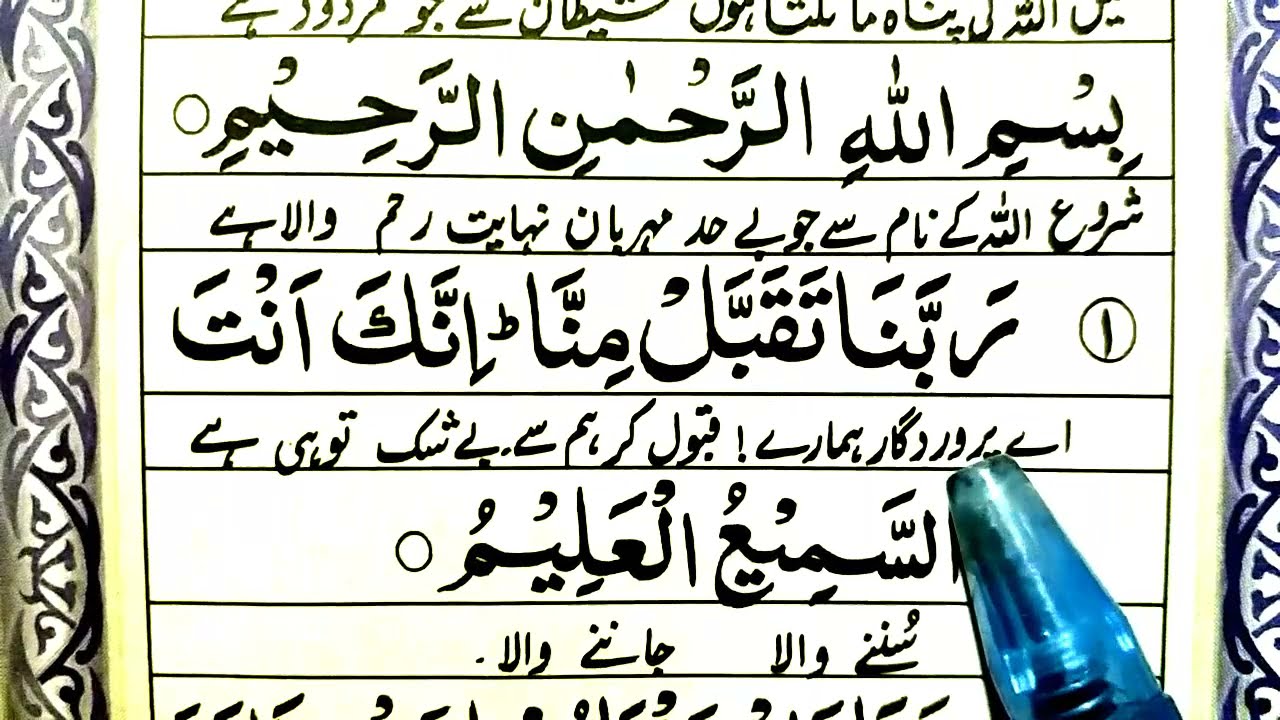 میں اللہ کی پناہ مانگتا ہوں شیطان سے جو مردود ہے
بِسْمِ اللّٰهِ الرَّحْمٰنِ الرَّحِيْمِ ○
شروع اللہ کے نام سے جو بے حد مہربان نہایت رحم والا ہے
١ رَبَّنَا تَقَبَّلْ مِنَّا ؕ اِنَّكَ اَنْتَ
اے پروردگار ہمارے ! قبول کر ہم سے۔ بے شک تو ہی ہے
السَّمِيْعُ الْعَلِيْمُ ○
سُننے والا جاننے والا ۔